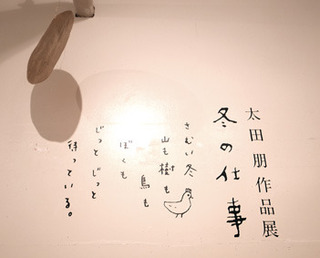 太田朋作品展
冬の仕事
さむい冬
山も樹も
鳥も
ぼくも
じっとじっと
待っている。